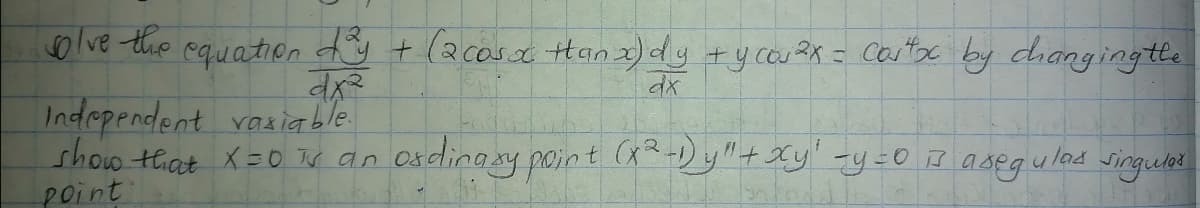 solve the equation d²y/dx² + (2cosx + tanx)dy/dx + ycos²x = cos⁴x by changing the
Independent variable.
show that x=0 is an ordinary point (x²-1)y"+xy'-y=0 is a regular singular
point